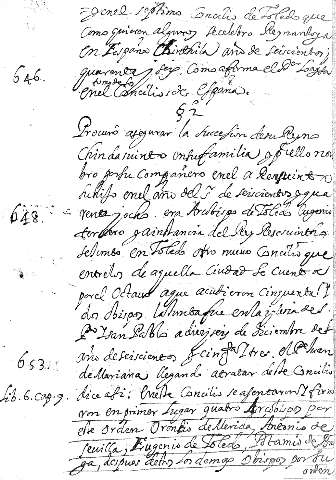 y en el septimo Concilio de Toledo que
como quieren algunos se celebro Reynando ya
en España Chinthila año de seiscientos y
646.
quarenta y seis. Como afirma el Pe. Loaysa
en el Concilios de España.
§ 2º
Procuró asegurar la succession de su Reyno
Chindasuinto en su familia y por ello nom
bro por su Compañero en el a Recesuinto
su hijo en el año del Sr. de seiscientos y qua
648.
renta y ocho. era Arcobispo de Toledo Eugenio
tercero y a instancia del Rey Recesuinto
se hizo en Toledo otro nuevo Concilio que
entre los de aquella Ciudad se cuenta
por el Octavo a que acudieron cinquenta y
dos obispos la Junta fue en la yglesia de S.
Po. y San Pablo a diez y seis de Diciembre del
653.
año de seiscientos y cinqta. y tres. el Pe. Juan
de Mariana llegando a tratar deste Concilio
Lib. 6. Cap. 9.
dice asi: En este Concilio se asentaron y firma
ron en primer lugar quatro Arcobispos por
este orden Oroncio de Merida, Antonio de
Sevilla, Eugenio de Toledo, Potamio de Bra
ga, despues destos los demas obispos por su
orden